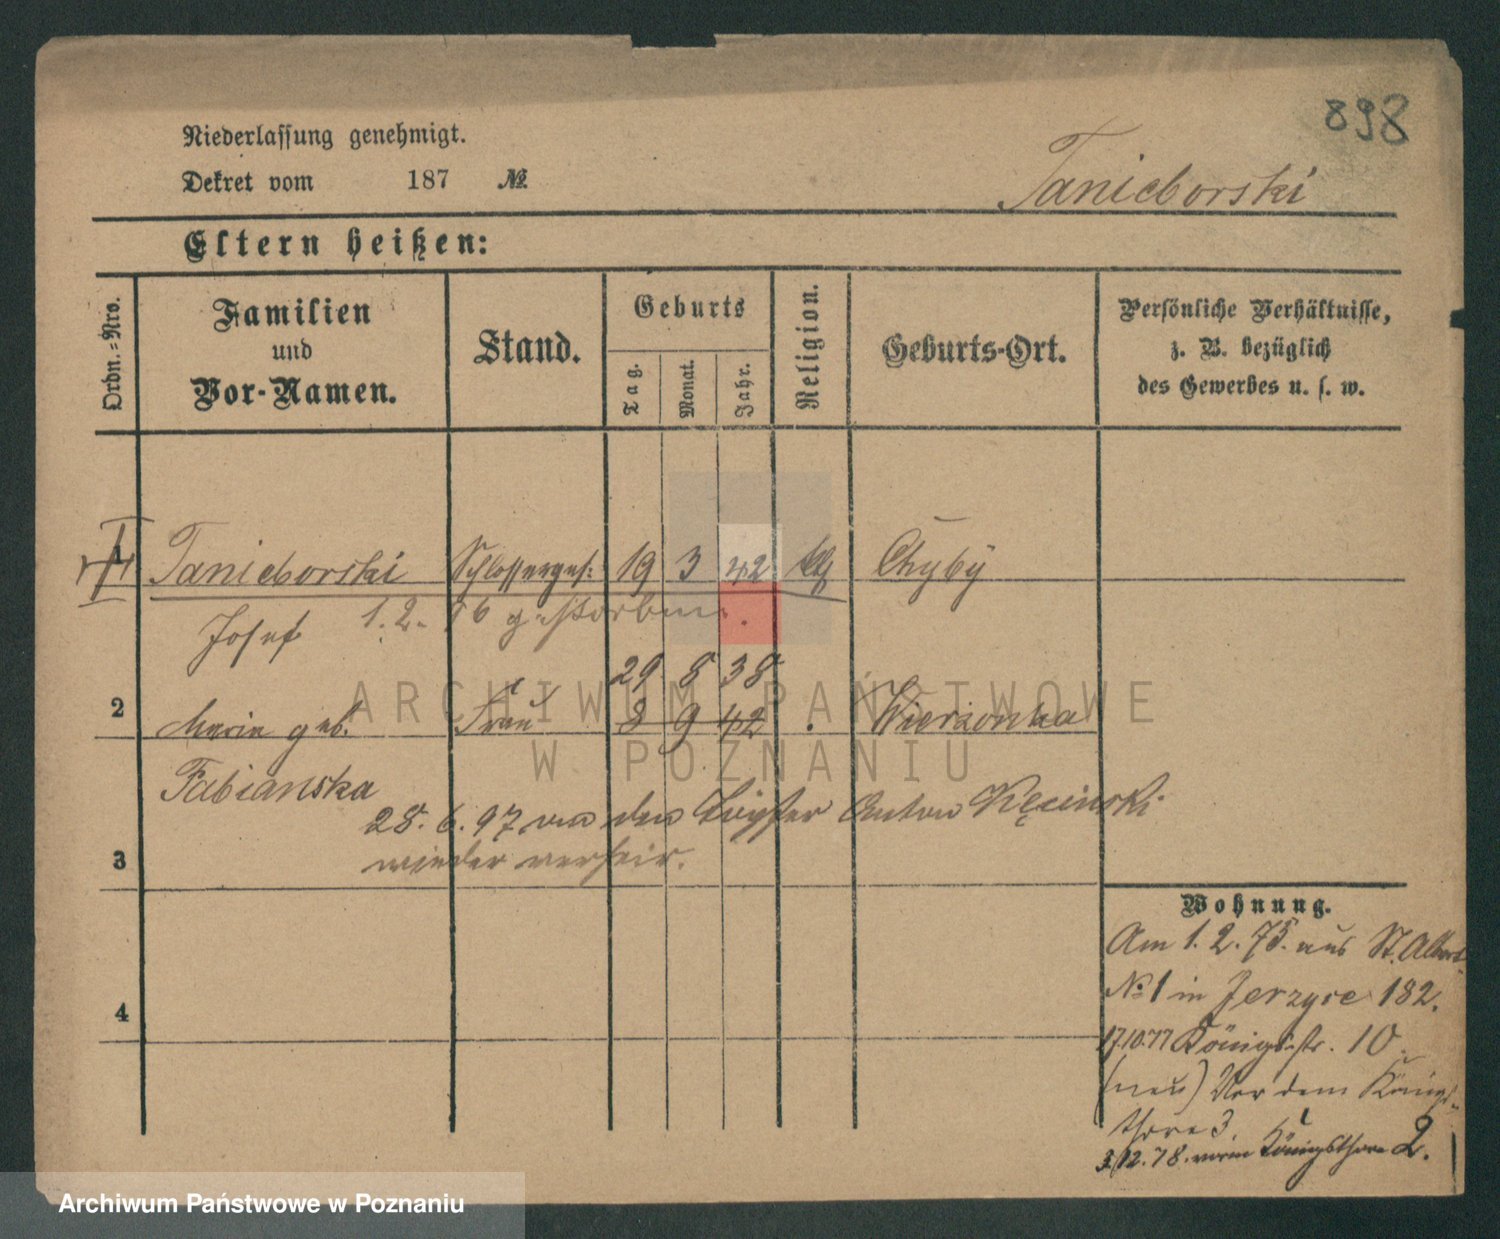 898
Niederlassung genehmigt.
Dekret vom 187 №
Tanieborski
Eltern heißen:
Ordn.-Nro.
Familien
und
Vor-Namen.
Stand.
Geburts
Tag.
Monat.
Jahr.
Religion.
Geburts-Ort.
Persönliche Verhältnisse,
z. B. bezüglich
des Gewerbes u. s. w.
1 Tanieborski Schlosserges: 19 3 42 Chyby
Josef 1. 2. 96 gestorben.
29 8 38
2 Marie geb. Frau 8 9 42 Wierzonka
Fabianska
28. 6. 97 den Töpfer Anton Kęcinski
3 wieder verheir.
4
Wohnung.
Am 1. 2. 75. aus St. Albert
No 1 in Jerzyce 182.
17.10.77 Königsstr. 10.
(neu) Vor dem Königs-
thore 3.
3/12. 78. Königsthore 2.
ARCHIWUM PAŃSTWOWE
W POZNANIU
Archiwum Państwowe w Poznaniu